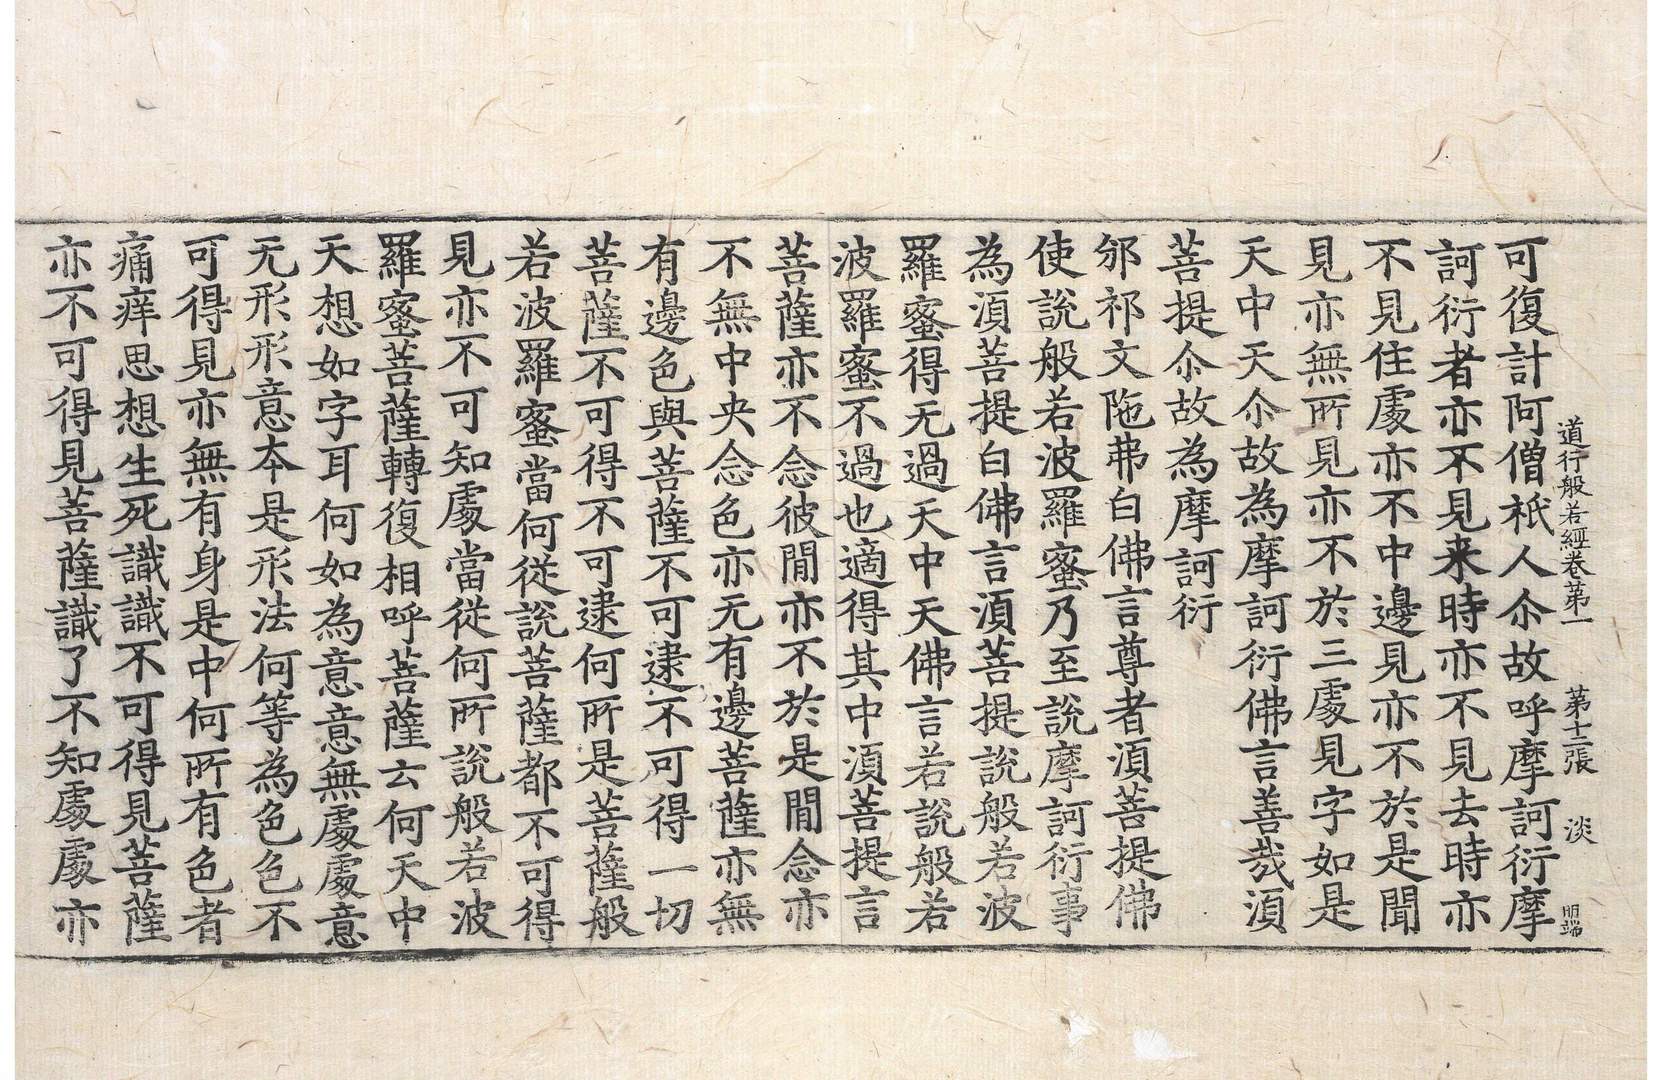 道行般若經卷第一 第十二張 淡 明端
可復計阿僧祇人尒故呼摩訶衍摩
訶衍者亦不見来時亦不見去時亦
不見住處亦不中邊見亦不於是聞
見亦無所見亦不於三處見字如是
天中天尒故為摩訶衍佛言善㢤湏
菩提尒故為摩訶衍
邠祁文陁弗白佛言尊者湏菩提佛
使說般若波羅蜜乃至說摩訶衍事
為湏菩提白佛言湏菩提說般若波
羅蜜得无過天中天佛言若說般若
波羅蜜不過也適得其中湏菩提言
菩薩亦不念彼閒亦不於是閒念亦
不無中央念色亦无有邊菩薩亦無
有邊色與菩薩不可逮不可得一切
菩薩不可得不可逮何所是菩薩般
若波羅蜜當何從說菩薩都不可得
見亦不可知處當從何所說般若波
羅蜜菩薩轉復相呼菩薩云何天中
天想如字耳何如為意意無處處意
无形形意夲是形法何等為色色不
可得見亦無有身是中何所有色者
痛痒思想生死識識不可得見菩薩
亦不可得見菩薩識了不知處處亦